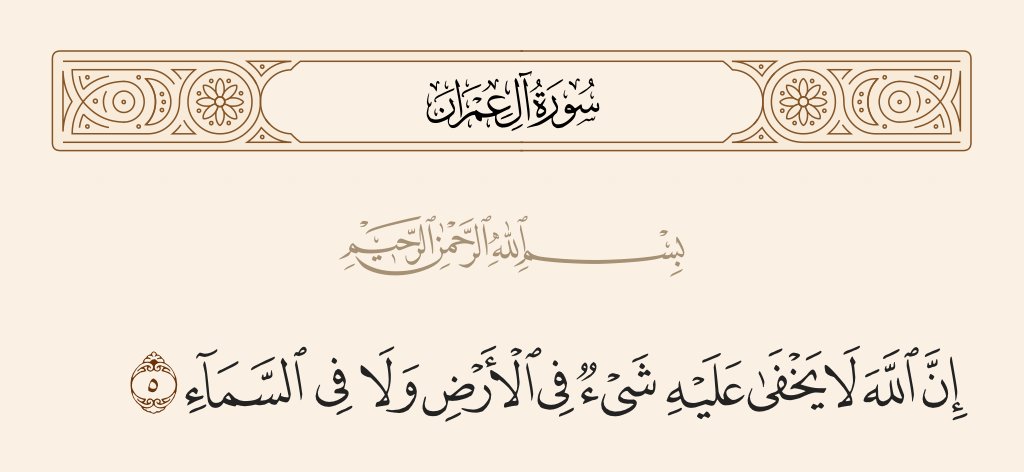 سُورَةُ آلِ عِمْرَانَ
بِسْمِ ٱللَّهِ ٱلرَّحْمَٰنِ ٱلرَّحِيمِ
إِنَّ ٱللَّهَ لَا يَخْفَىٰ عَلَيْهِ شَىْءٌ فِى ٱلْأَرْضِ وَلَا فِى ٱلسَّمَآءِ ٥